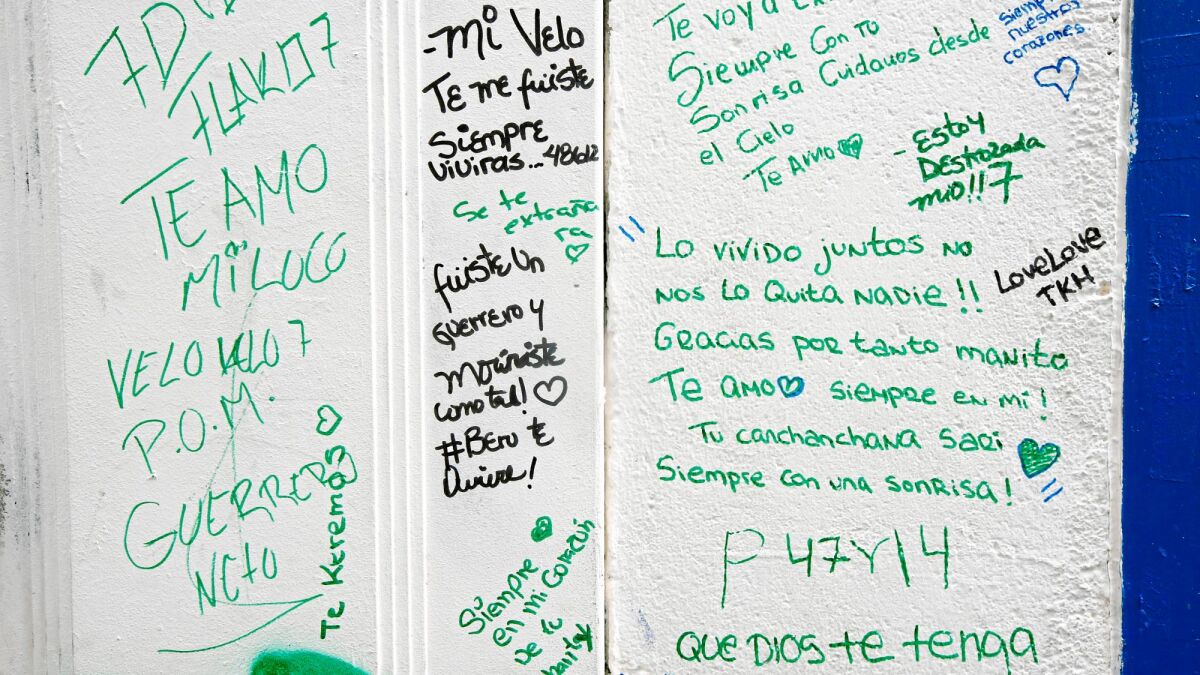 FLAKO 7
TE AMO
Mi LOCO
VELO VELO 7
P.O.M.
GUERRERO
NCTO
Te Keremos
-Mi Velo
TE me fuiste
Siempre
viviras...
Se te
extraña
ra
fuiste un
guerrero y
moriste
como tal!
#Beru te
Te voy a
Siempre Con Tu
Sonrisa Cuidanos desde
el Cielo
Te Amo
siempre
nuestros
corazones
- Estoy
Destrozada
mio!!7
Lo vivido juntos no
nos lo Quita nadie!!
Gracias por tanto manito
Te amo siempre en mi!
Tu canchanchana sari
Siempre con una sonrisa!
LoveLove
TKH
P 47Y14
Siempre
en mi Corazon
De tu
QUE DIOS te tenga